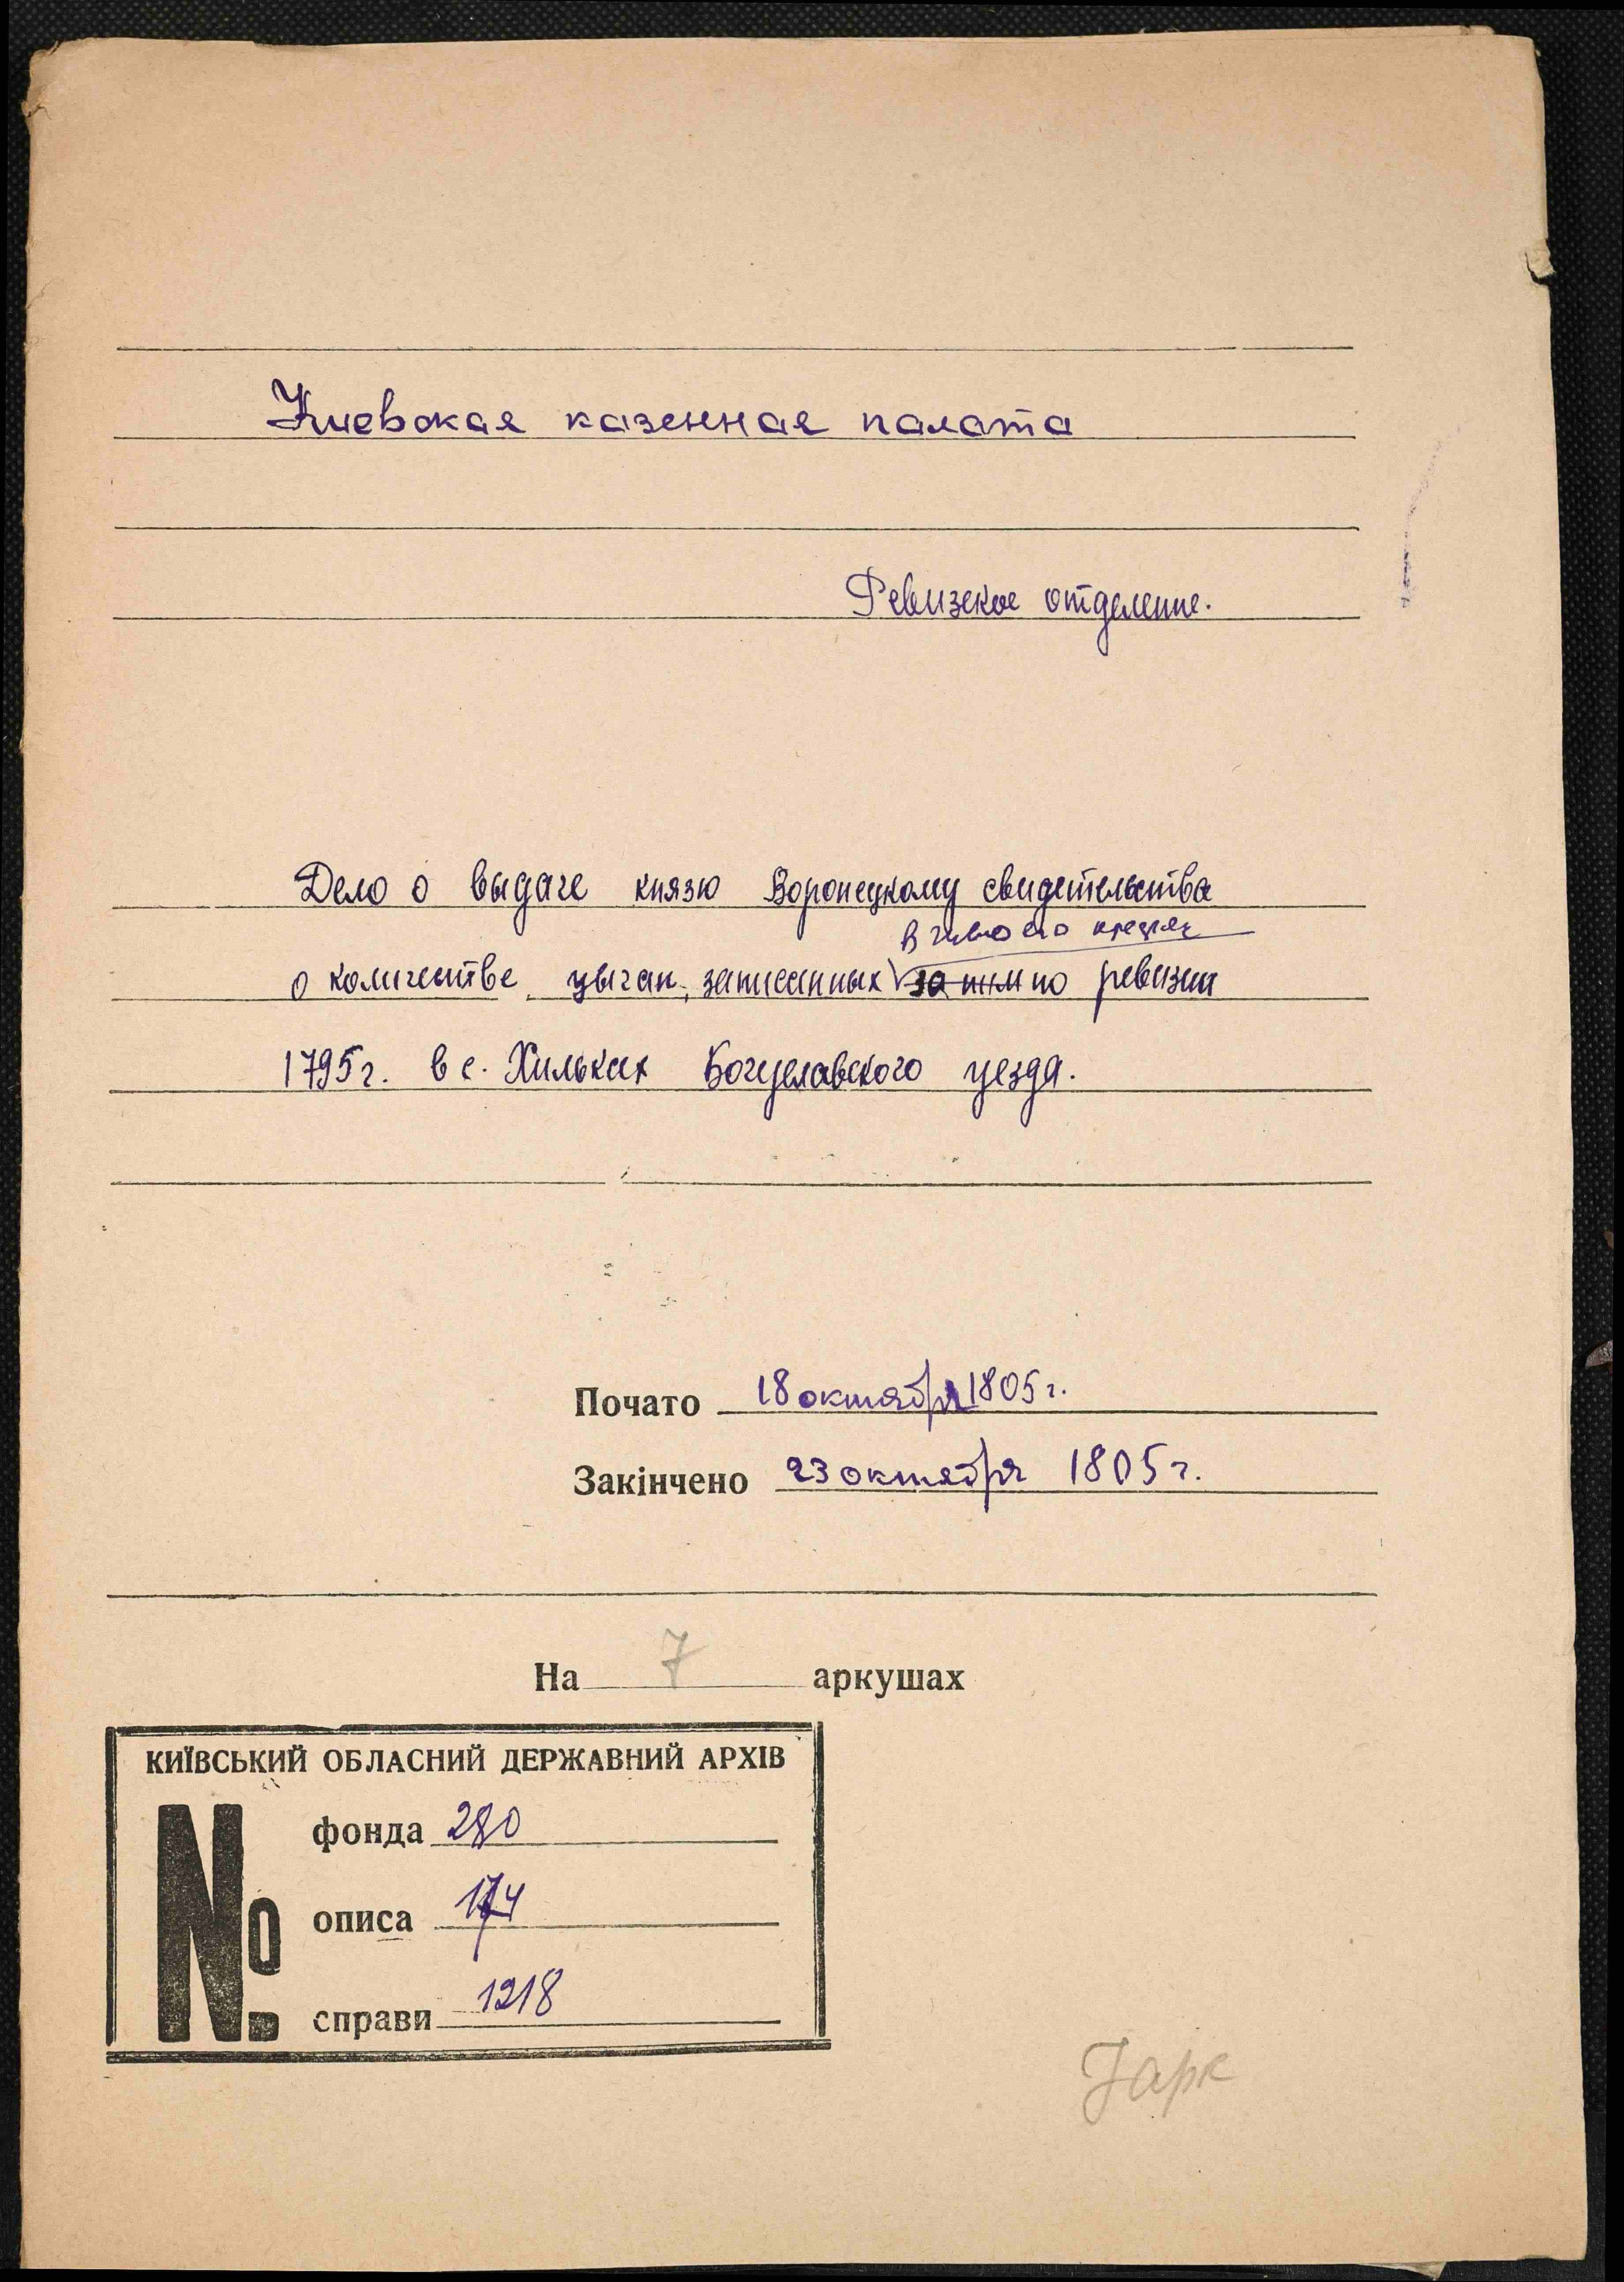 Киевская казенная палата
Ревизское отделение.
Дело о выдаче князю Воронецкому свидетельства
в число его крестьян
о количестве цыган, записанных за ним по ревизии
1795 г. в с. Хильках Богуславского уезда.
Почато 18 октября 1805 г.
Закінчено 23 октября 1805 г.
На 7 аркушах
КИЇВСЬКИЙ ОБЛАСНИЙ ДЕРЖАВНИЙ АРХІВ
№
фонда 280
описа 174
справи 1218
7 арк